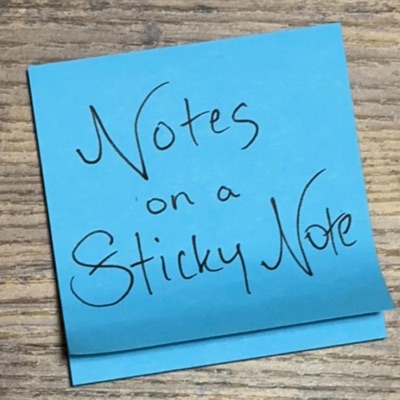 Notes
on a
Sticky Note